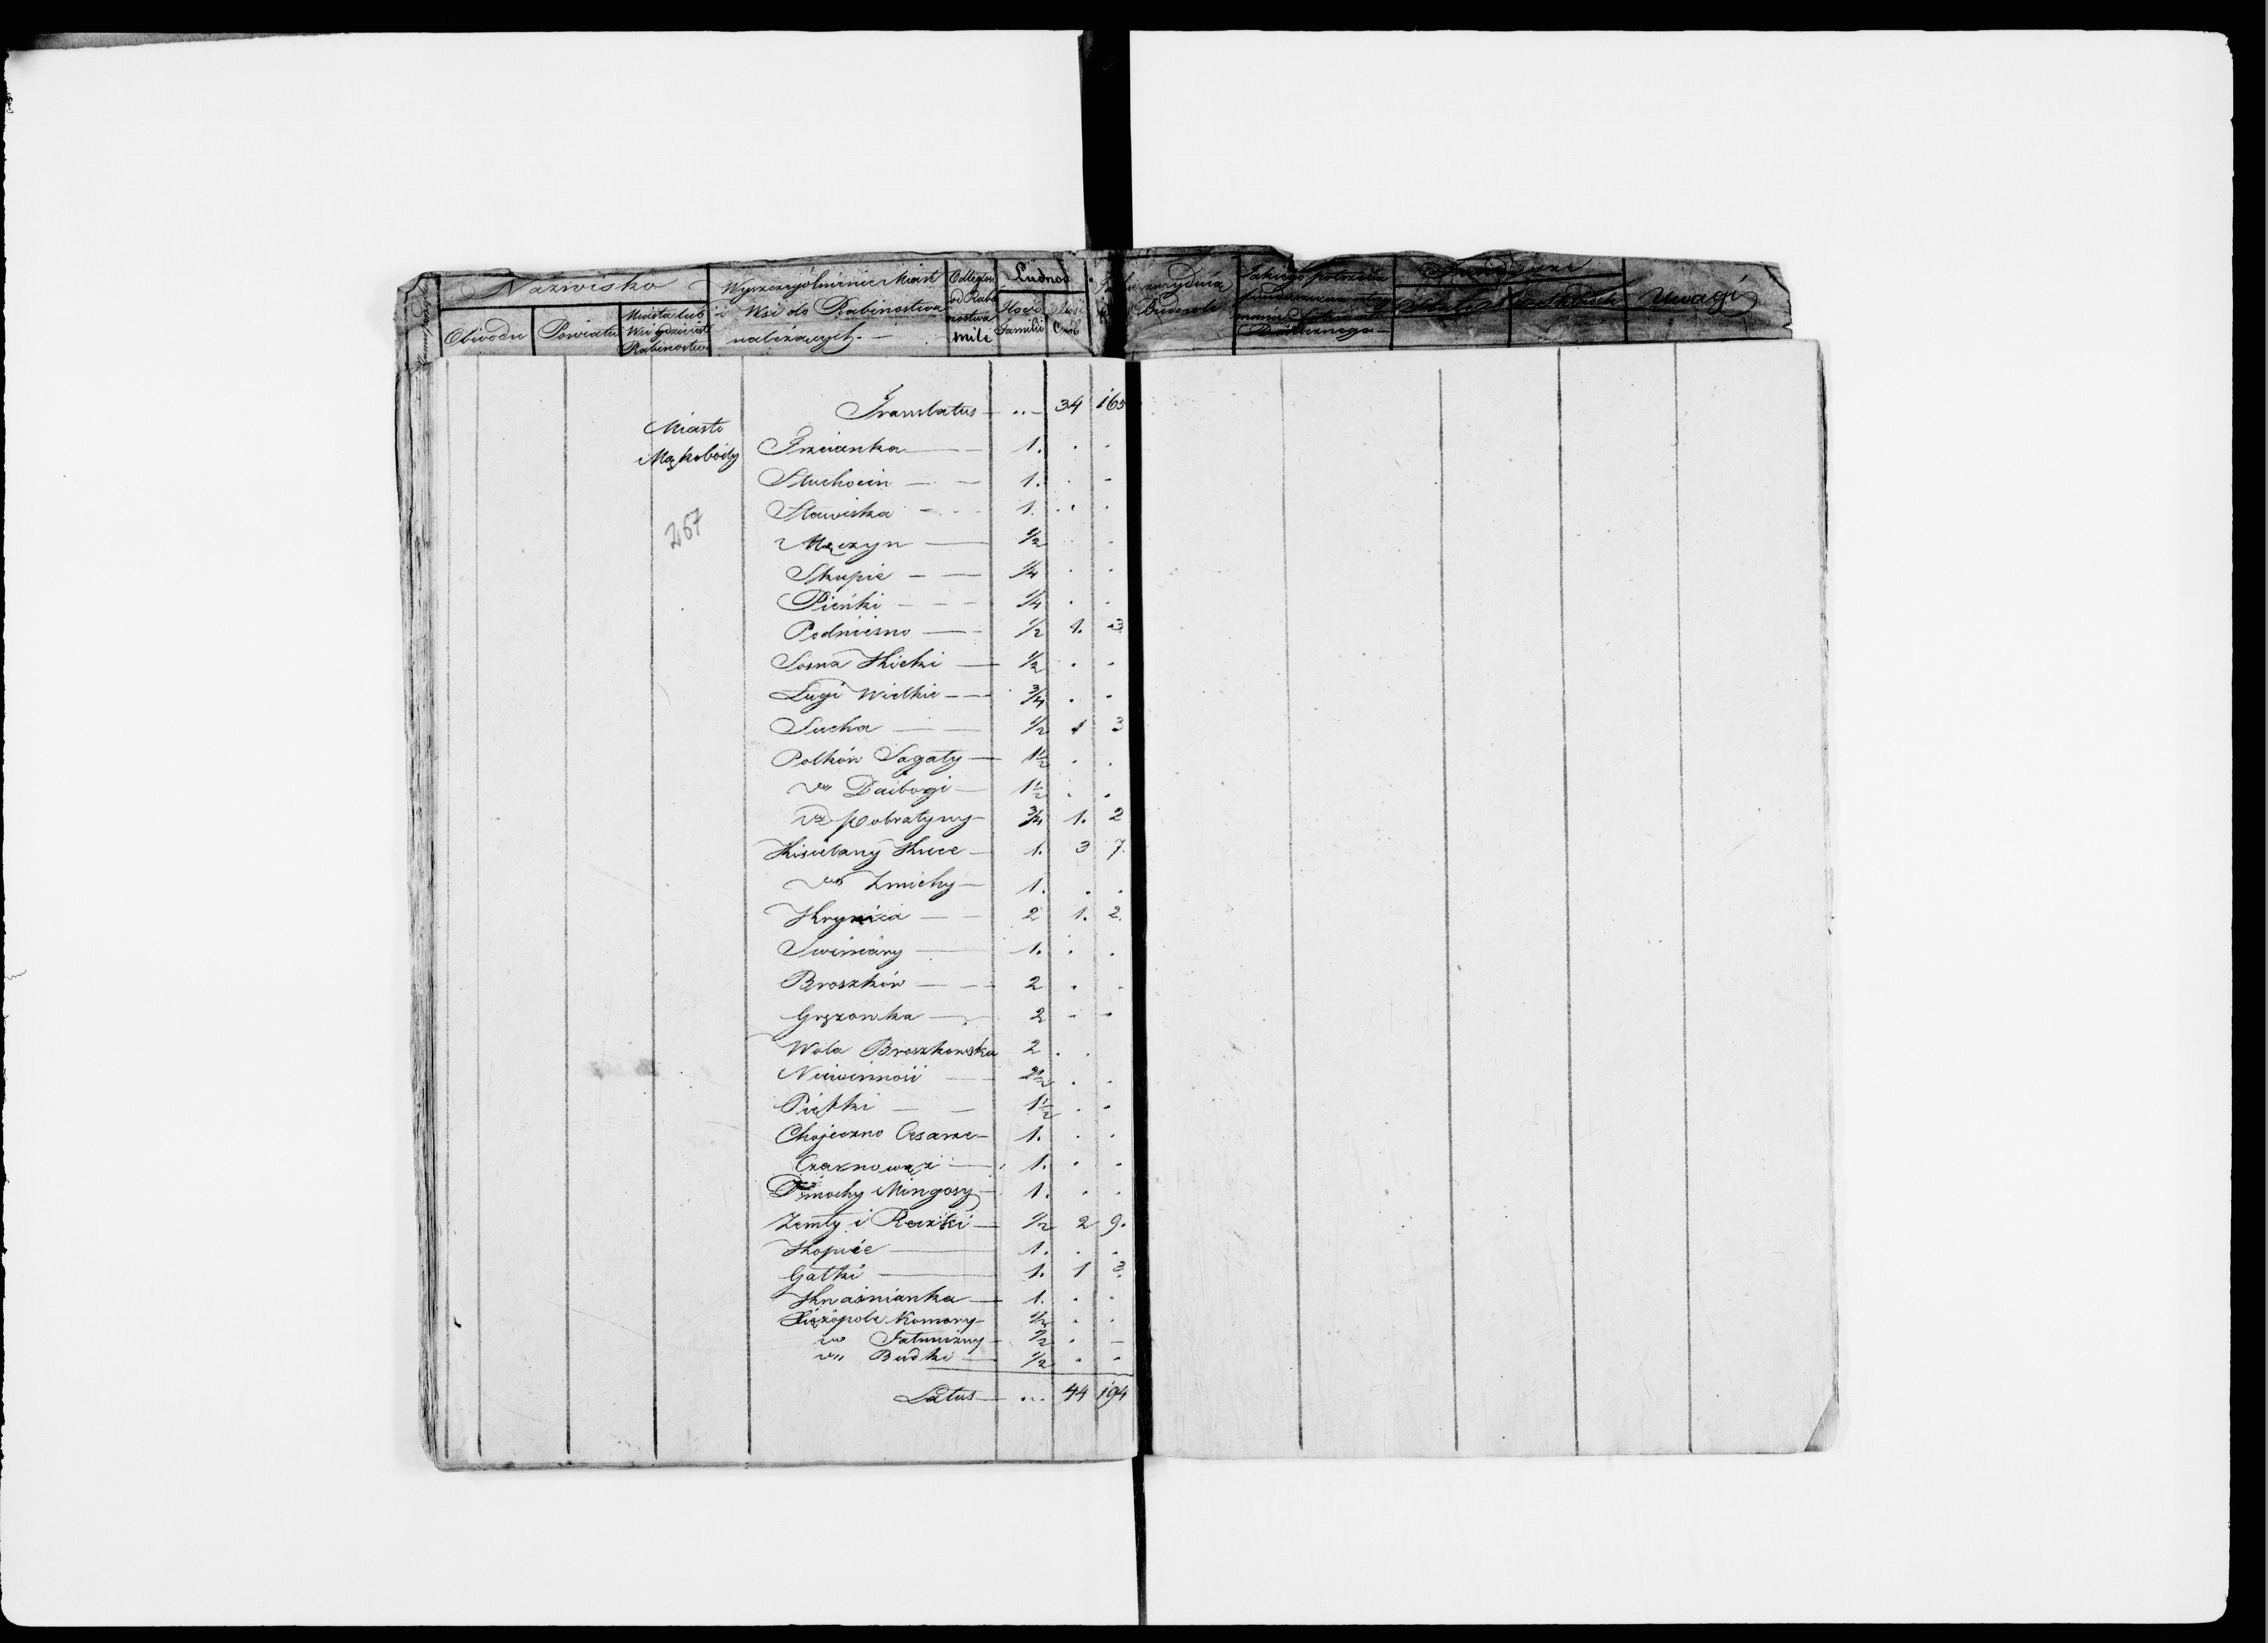 Nazwisko
Obwodu Powiatu Miasta lub Wsi gdzie jest Rabinostwo
Wyszczególnienie Miast i Wsi do Rabinostwa należących.
Odległość od Rabinostwa mile
Ludność
Ilość Familii Ilość Osób
Uwagi
Miasto
Mąkobódy
267
Translatus — ... 34 163
Trzcianka — 1. . -
Stuchocin — 1. . -
Stawiska — 1. . .
Mączyn — 1/2 . -
Skupie — 1/4 . .
Pieńki — 1/4 . .
Podnieśno — 1/2 1. 3
Sosna Kicki — 1/2 . -
Ługi Wielkie — 3/4 . .
Sucha — 1/2 1 3
Polków Sagały — 1 1/2 . .
" Daćbogi — 1 1/2 . .
" Pobratymy — 3/4 1. 2
Kisielany Kuce — 1. 3 7.
" Żmichy — 1. . .
Krynica — 2 1. 2.
Swiniary — 1. . .
Broszków — 2 . -
Gręzowka — 2 - -
Wola Broszkowska 2 . .
Niewinność — 2 1/2 . .
Piętki — 1 1/2 . .
Chojeczno Cesarze — 1. . .
Czarnowąż — 1. . .
Tymochy Mingosy — 1. . .
Zemły i Reczki — 1/2 2 9.
Kopcie — 1. . .
Gałki — 1. 1 3.
Kwaśnianka — 1. . .
Xiężopole Komory — 1/2 . .
" Jałmużny — 1/2 . -
" Budki — 1/2 . -
Latus — ... 44 194